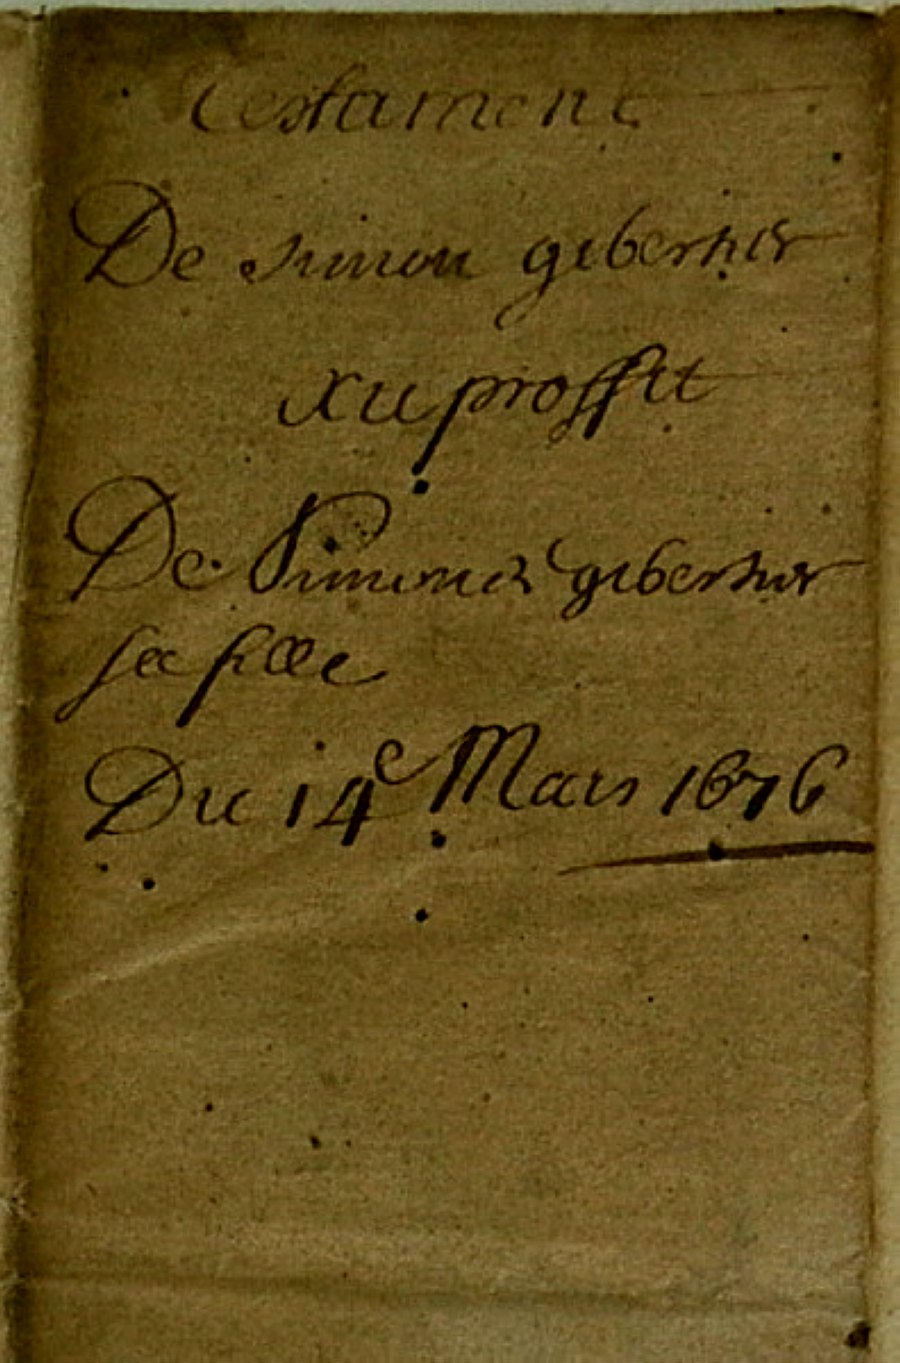 Testament
De simon gibernier
Au proffit
De Simonne gibernier
sa fille
Du 14e Mars 1676